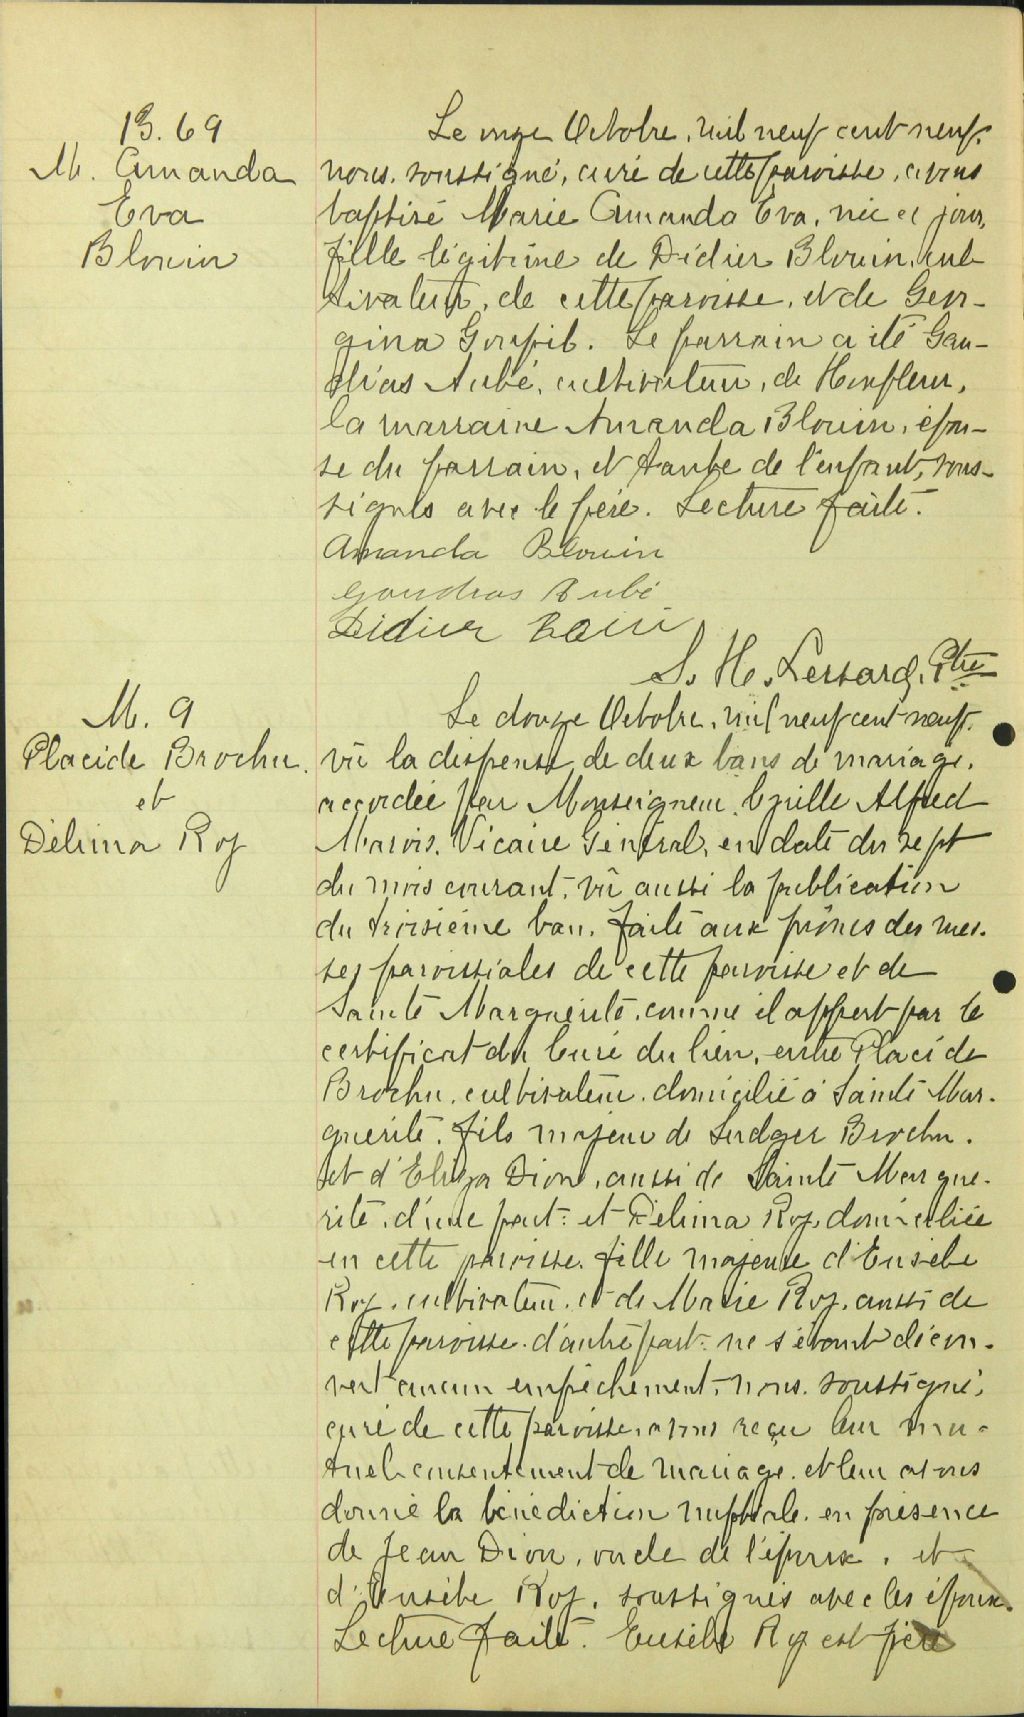 B. 69
M. Amanda
Eva
Blouin
Le onze Octobre, mil neuf cent neuf,
nous, soussigné, curé de cette paroisse, avons
baptisé Marie Amanda Eva, née ce jour,
fille légitime de Didier Blouin, cul-
tivateur, de cette paroisse, et de Geor-
gina Goupil. Le parrain a été Gau-
dias Aubé, cultivateur, de Honfleur,
la marraine Amanda Blouin, épou-
se du parrain, et tante de l'enfant, sous-
signés avec le père. Lecture faite.
Amanda Blouin
Gaudias Aubé
Didier
S. H. Lessard, Ptre
M. 9
Placide Brochu
et
Délima Roy
Le douze Octobre, mil neuf cent neuf,
vû la dispense de deux bans de mariage,
accordée par Monseigneur Cyrille Alfred
Marois, Vicaire Général, en date du sept
du mois courant, vû aussi la publication
du troisième ban, faite aux prônes des mes-
ses paroissiales de cette paroisse et de
Sainte Marguerite, comme il appert par le
certificat du Curé du lieu, entre Placide
Brochu, cultivateur, domicilié à Sainte Mar-
guerite, fils majeur de Ludger Brochu,
et d'Eliza Dion, aussi de Sainte Margue-
rite, d'une part: et Délima Roy, domiciliée
en cette paroisse, fille majeure d'Eusèbe
Roy, cultivateur, et de Marie Roy, aussi de
cette paroisse, d'autre part: ne s'étant décou-
vert aucun empêchement, nous, soussigné,
curé de cette paroisse, avons reçu leur mu-
tuel consentement de mariage, et leur avons
donné la bénédiction nuptiale, en présence
de Jean Dion, oncle de l'époux, et
d'Eusèbe Roy, soussignés avec les époux.
Lecture faite. Eusèbe Roy est père